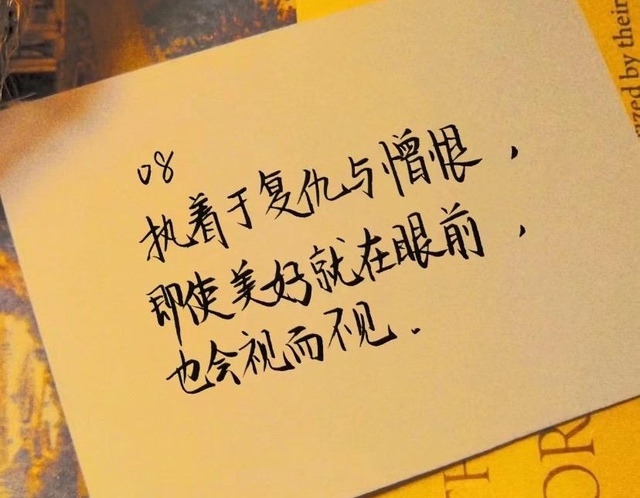 08
执着于复仇与憎恨，
即使美好就在眼前，
也会视而不见.
by their
TH
OR